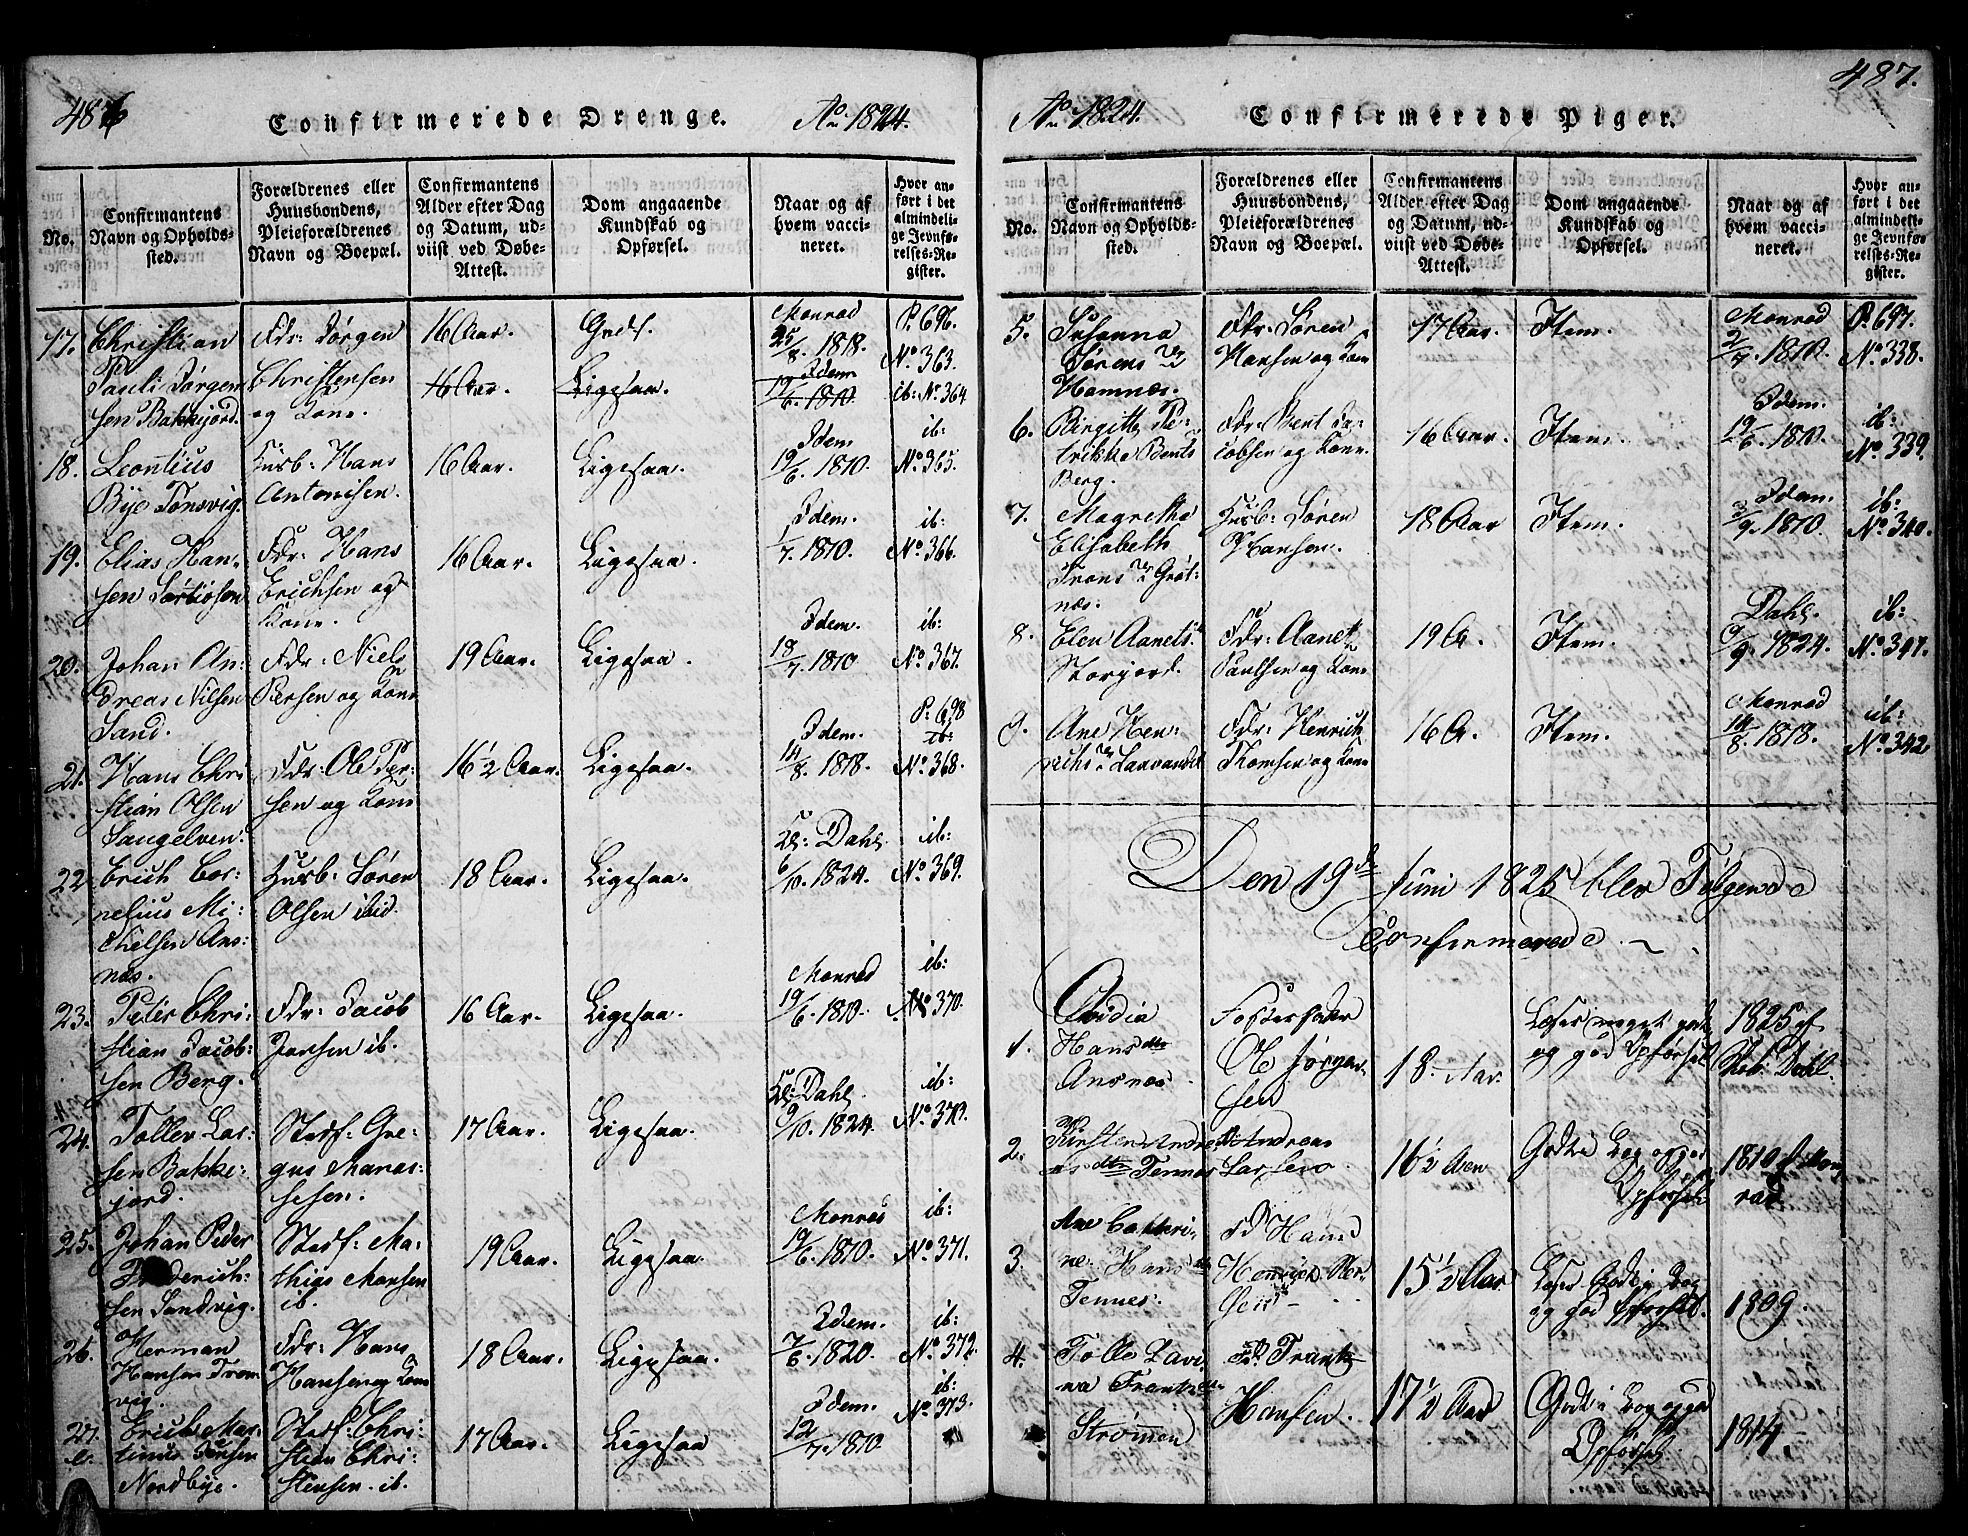 486
Confirmerede Drenge. Ao 1824.
No.
Confirmantens
Navn og Opholds-
sted.
Forældrenes eller
Huusbondens,
Pleieforældrenes
Navn og Boepæl.
Confirmantens
Alder efter Dag
og Datum, ud-
viist ved Døbe-
Attest.
Dom angaaende
Kundskab og
Opførsel.
Naar og af
hvem vacci-
neret.
Hvor an-
ført i det
almindeli-
ge Jevnfø-
relses-Re-
gister.
17. Christian
Pauli Jørgen
sen Bakkejord.
Fdr: Jørgen
Christensen
og Kone.
16 Aar. Godt. Monrad
25/8. 1818. P. 696.
No. 363.
16 Aar. Ligesaa. Idem
19/6. 1810. ib: No. 364
18. Leontius
Bye Tønsvig.
Husb: Hans
Antonisen.
16 Aar. Ligesaa. Idem
19/6. 1810. ib:
No. 365.
19. Elias Han-
sen
Fdr: Hans
Erichsen og
Kone.
16 Aar. Ligesaa. Idem.
1/7. 1810. ib:
No. 366.
20. Johan An-
dreas Nilsen
Sand.
Fdr: Niels
Persen og Kone
19 Aar. Ligesaa. Idem.
18/7. 1810 ib:
No. 367.
21. Hans Chri
stian Olsen
Sangelven.
Fdr: Ole Per-
sen og Kone
16 1/2 Aar. Ligesaa. Idem.
14/8. 1818. P. 698
ib:
No. 368.
22 Erich Cor-
nelius Mi-
chelsen Ans-
nes.
Husb: Søren
Olsen ibid.
18 Aar. Ligesaa. Dahl
6/10. 1824. ib:
No. 369.
23. Peter Chri-
stian Jacob-
sen Berg.
Fdr: Jacob
Jansen ib.
16 Aar. Ligesaa. Monrad
19/6. 1810. ib:
No. 370.
24. Toller Lar-
sen Bakke-
jord.
Stedf: Gre-
gus Manas-
sesen.
17 Aar. Ligesaa. Dahl.
9/10. 1824 ib:
No. 370.
25. Johan Peder
Frederich-
sen Sandvig.
Stedf: Ma-
thias Monsen
ib.
19 Aar. Ligesaa. Monrad
19/6. 1810. ib:
No. 371.
26. Herman
Hansen Trom
vig.
Fdr: Hans
Hansen og Kone
18 Aar. Ligesaa. Idem.
7/6. 1820. ib:
No. 372.
27. Erich Mar-
tinus Jonsen
Nordbye.
Stedf: Chri-
stian Chri-
stensen ib.
17 Aar. Ligesaa Idem.
12/7. 1810 ib:
No. 373.
487.
Ao 1824. Confirmerede Piger.
No.
Confirmantens
Navn og Opholds-
sted.
Forældrenes eller
Huusbondens,
Pleieforældrenes
Navn og Boepæl.
Confirmantens
Alder efter Dag
og Datum, ud-
viist ved Døbe-
Attest.
Dom angaaende
Kundskab og
Opførsel.
Naar og af
hvem vacci-
neret.
Hvor an-
ført i det
almindeli-
ge Jevnfø-
relses-Re-
gister.
5. Johanna
Sørens Dr
Hamnes.
Fdr: Søren
Hansen og Kone
17 Aar. Item. Monrad
2/7. 1810. P. 697.
No. 338.
6. Birgitte Fre-
drikke Bents
Berg.
Fdr: Bent Ja-
cobsen og Kone
16 Aar. Item. Idem.
19/6. 1810. ib:
No. 339.
7. Magretha
Elisabeth
Trons Dr Grøt-
næs.
Husb: Søren
Hansen.
18 Aar Item. Idem.
3/9. 1810. ib:
No. 340.
8. Elen Aanets
Storjord.
Fdr: Aanet
Paulsen og Kone
19 A. Item. Dahl.
9/9. 1824. ib:
No. 341.
9. Ane Hen-
richs Dr Larvandet
Fdr: Henrich
Thomsen og Kone
16 A. Item. Monrad
14/8. 1818. ib:
No. 342
Den 19de Juni 1825 blev Følgende
Confirmerede
1. Ovidia
Hansdtr
Ansnæs.
Fosterfader
Ole Jørgen-
sen
18. Aar Læser meget godt
og god Opførsel 1825 af
Dahl.
2. Kirsten Andre-
asdtr Tennes
Fd Andreas
Larsen.
16 1/2 Aar Godt i Bog og god
Opførsel 1810 af Mon
rad.
3. Ane Cathri-
ne Hansdtr
Tennes.
Fd Hans
Henrich
15 1/2 Aar Læser Godt i Bog
og god Opførsel. 1809.
4. Tolle Lavi
na Frantzdtr
Strømmen
Fd. Frantz
Hansen.
17 1/2 Aar Godt i Bog og god
Opførsel 1814.